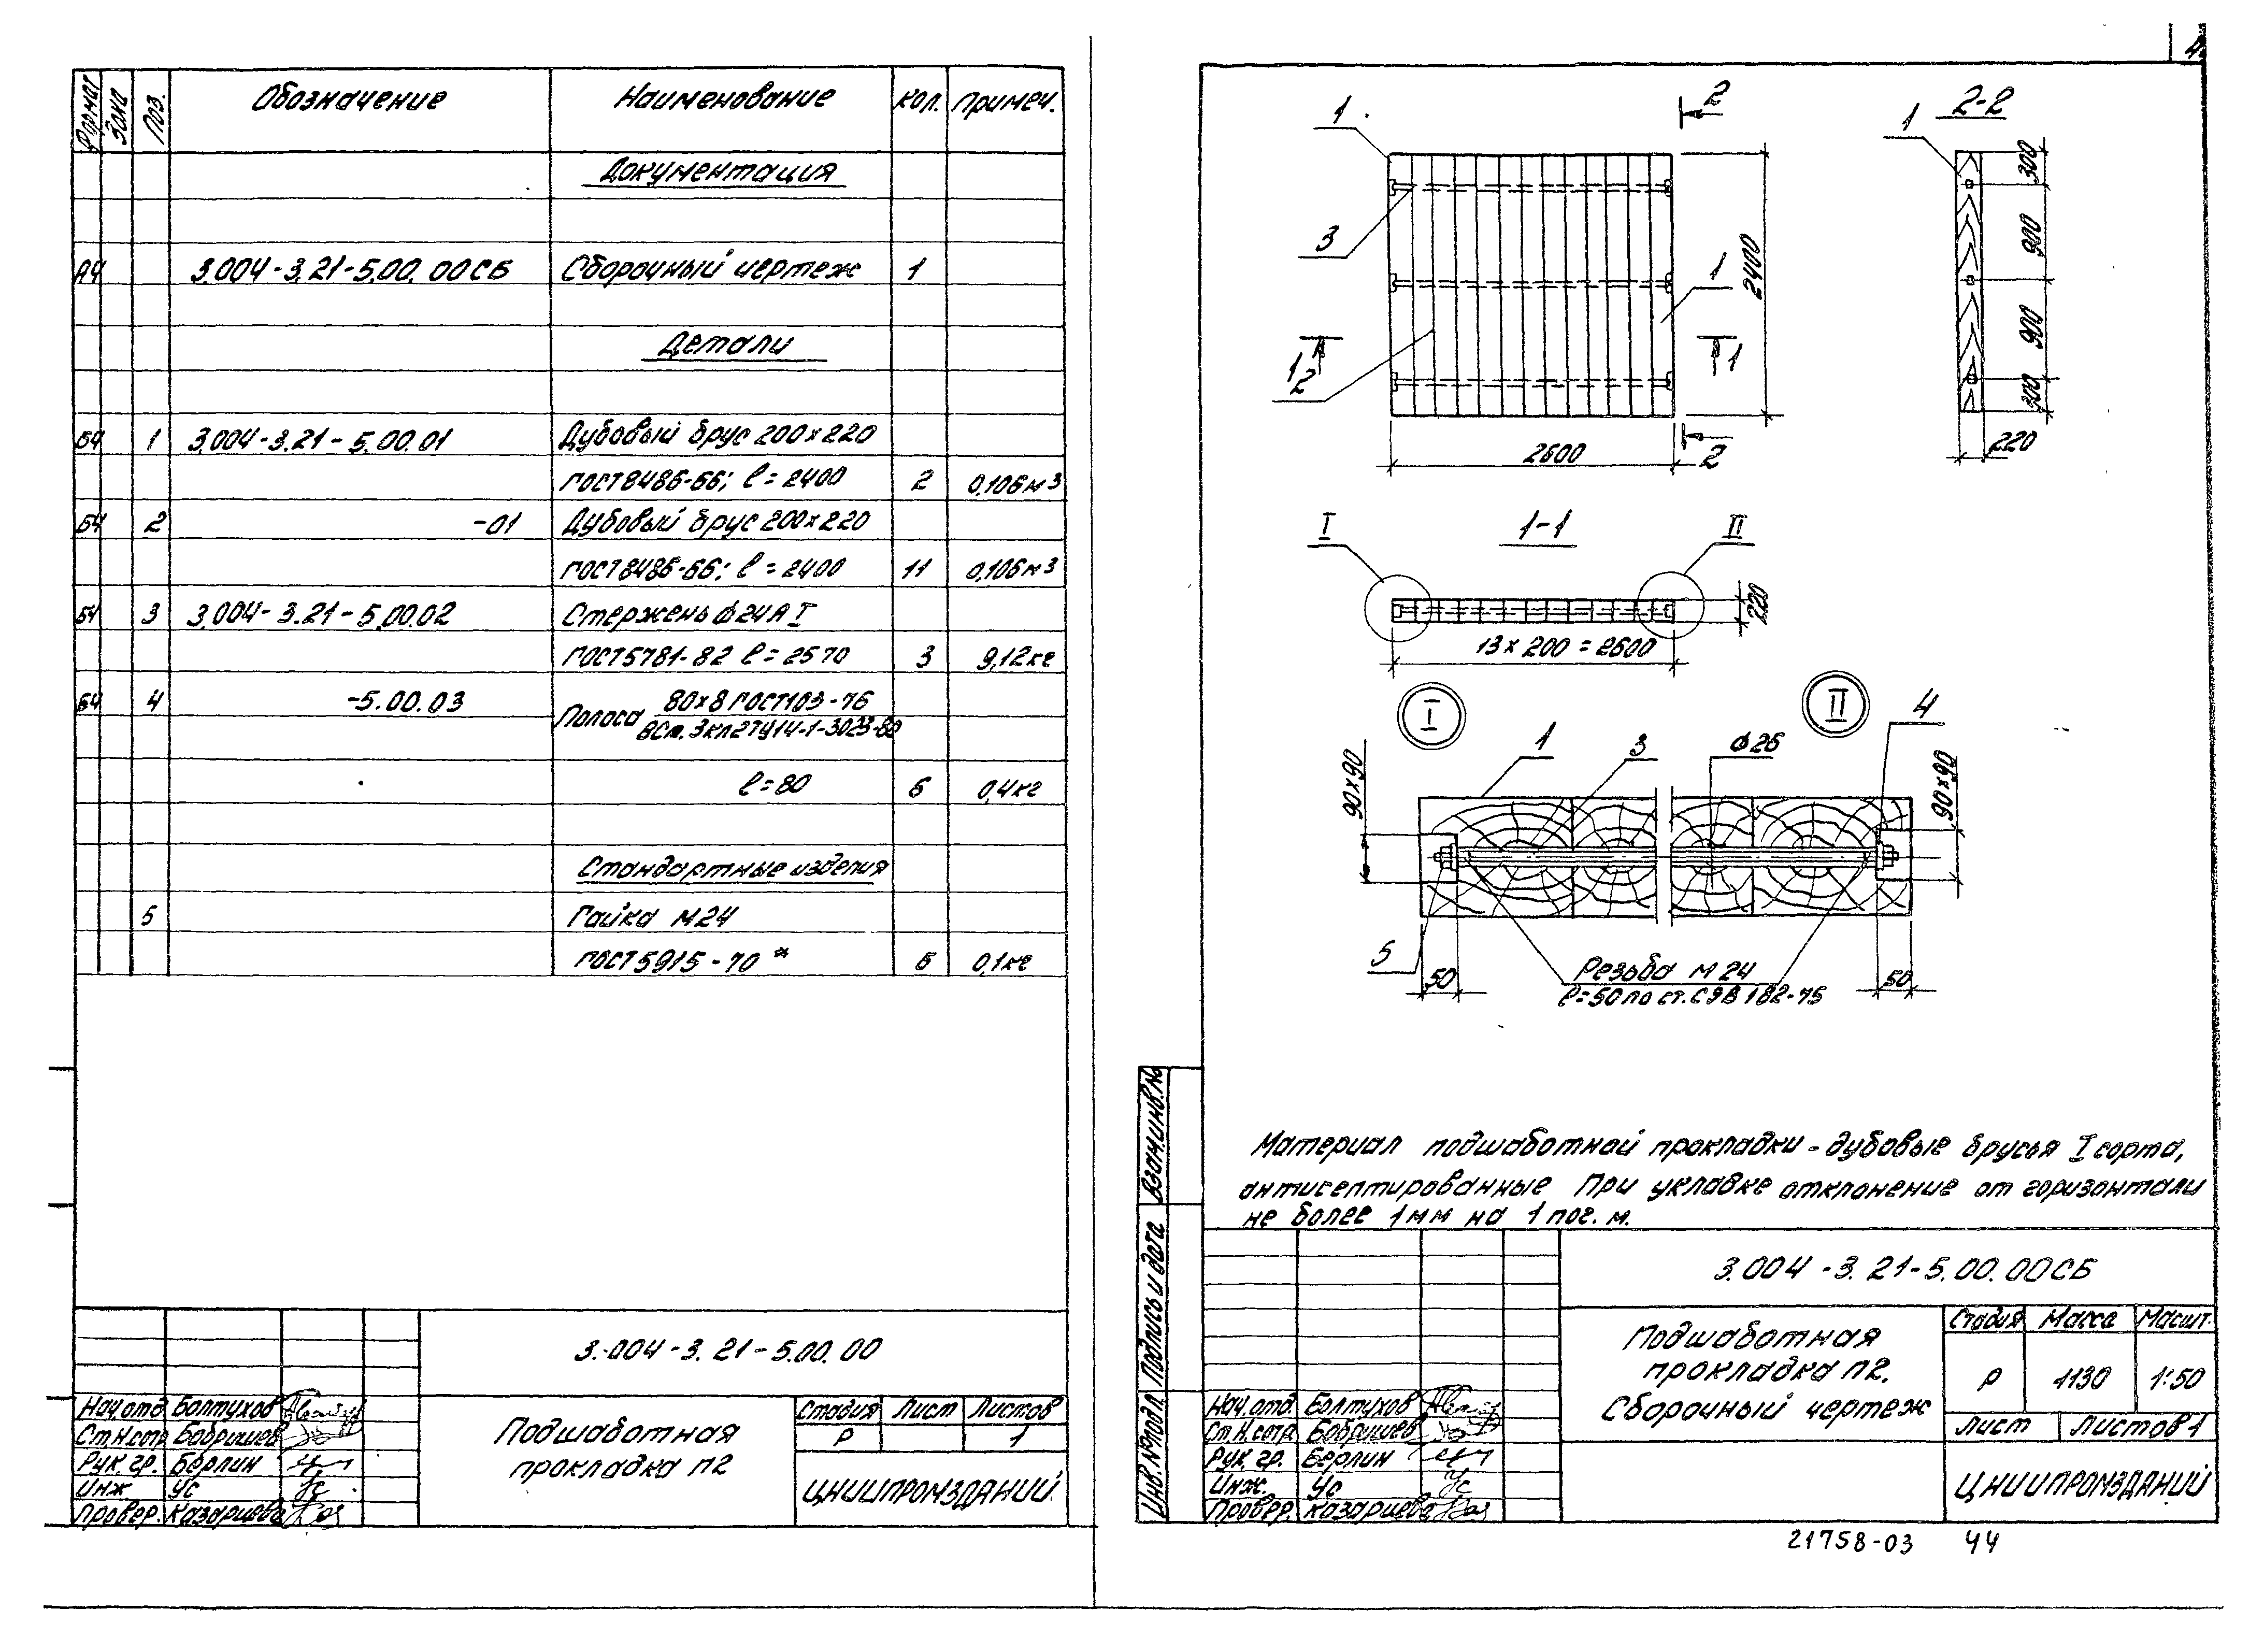 Формат Зона Поз. Обозначение Наименование Кол. Примеч.
Документация
А4 3.004-3.21-5.00.00СБ Сборочный чертеж 1
Детали
Б4 1 3.004-3.21-5.00.01 Дубовый брус 200×220
ГОСТ 8486-66; ℓ=2400 2 0,106м³
Б4 2 -01 Дубовый брус 200×220
ГОСТ 8486-66; ℓ=2400 11 0,106м³
Б4 3 3.004-3.21-5.00.02 Стержень ф24АI
ГОСТ 5781-82 ℓ=2570 3 9,12кг
Б4 4 -5.00.03 Полоса 80×8 ГОСТ103-76
ВСт.3кп2ТУ14-1-3023-80
ℓ=80 6 0,4кг
Стандартные изделия
5 Гайка М24
ГОСТ 5915-70* 6 0,1кг
3.004-3.21-5.00.00
Нач.отд Болтухов
Ст.Н.сотр Бобришев
Рук.гр. Берлин
Инж Ус
Провер. Казариева
Подшаботная
прокладка П2
Стадия Лист Листов
Р 1
ЦНИИПРОМЗДАНИЙ
1 2 2-2 1
3 2400 1 300 900 900 300
1 2 1
2600 2 220
I 1-1 II
220
13×200=2600
I II 4
1 3 ф26
90×90 90×90
5 50 50
Резьба М24
ℓ=50 по ст.СЭВ 182-75
Материал подшаботной прокладки - дубовые брусья I сорта,
антисептированные При укладке отклонение от горизонтали
не более 1мм на 1 пог. м.
Взам.инв.№
Подпись и дата
Инв.№подл.
3.004-3.21-5.00.00СБ
Подшаботная
прокладка П2.
Сборочный чертеж
Стадия Масса Масшт.
Р 1130 1:50
Лист Листов 1
ЦНИИПРОМЗДАНИЙ
Нач.отд. Болтухов
Ст.Н.сотр Бобришев
Рук.гр. Берлин
Инж. Ус
Провер. Казариева
21758-03 44